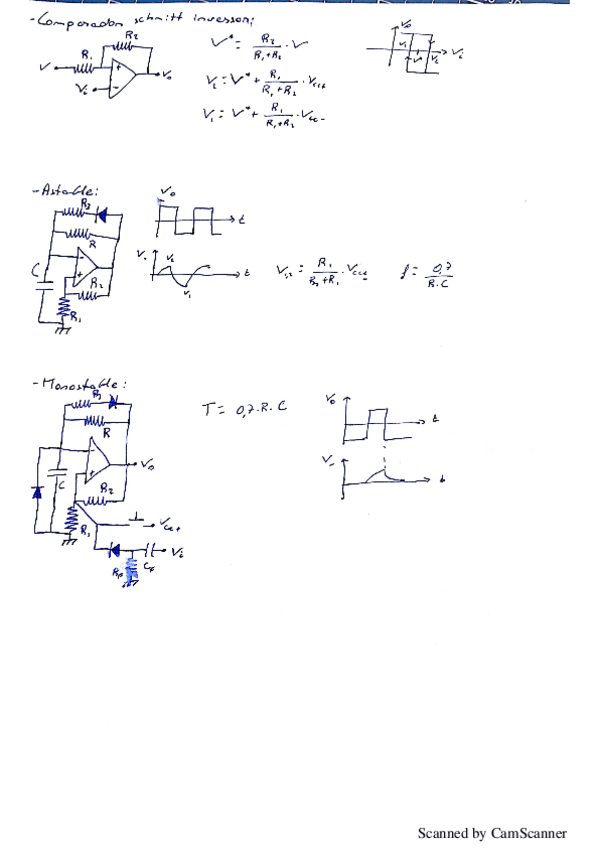 -Comparador schmitt inversor:
R₂
R₁
V
Vᵢ
V₀
+
-
V* = R₂/(R₁+R₂) · V
V₂ = V* + R₁/(R₁+R₂) · Vcc+
V₁ = V* + R₁/(R₁+R₂) · Vcc-
V₀
V₁ V* V₂
Vᵢ
-Astable:
R₃
R
C
-
+
R₂
R₁
V₀
t
V-
V₂
V₁
t
V₁,₂ = R₁/(R₂+R₁) · Vcc±
f = 0,7/(R·C)
-Monostable:
R₃
R
C
-
+
V₀
R₂
R₁
Vcc+
Vᵢ
C_F
R_F
T = 0,7·R·C
V₀
t
V-
t
Scanned by CamScanner